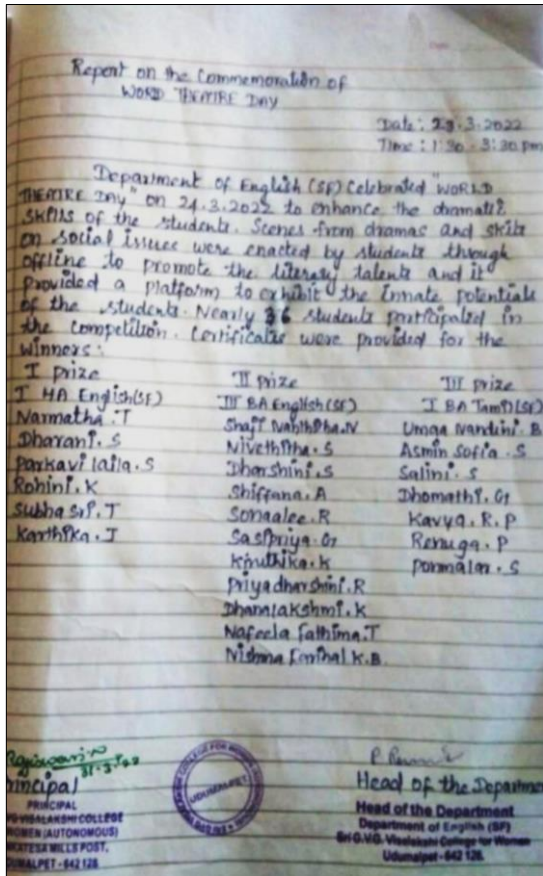 Report on the Commemoration of
WORD THEATRE DAY
Date: 23.3.2022
Time: 1:30 - 3:30 pm
Department of English (SF) Celebrated "WORLD
THEATRE DAY" on 24.3.2022 to enhance the dramatic
skills of the students. Scenes from dramas and skits
on social issues were enacted by students through
offline to promote the literary talents and it
provided a platform to exhibit the innate potentials
of the students. Nearly 36 students participated in
the competition. Certificates were provided for the
winners:
I prize
I MA English (SF)
Narmatha.T
Dharani.S
Parkavi laila.S
Rohini.K
Subha Sri.T
Karthika.J
II prize
III BA English (SF)
Shaji Nanthitha.N
Nivethitha.S
Dharshini.S
Shiffana.A
Sonaalee.R
Sasipriya.G
Kiruthika.K
Priyadharshini.R
Dhanalakshmi.K
Nafeela Fathima.T
Nishma K.B.
III prize
I BA Tamil (SF)
Umga Nandini.B
Asmin Sofia.S
Salini.S
Dhomathi.G
Kavya.R.P
Renuga.P
Ponmalar.S
Principal
PRINCIPAL
VISALAKSHI COLLEGE
WOMEN (AUTONOMOUS)
MILLS POST,
UDUMALPET - 642 128
UDUMALPET
Head of the Departmen
Head of the Department
Department of English (SF)
Sri G.V.G. Visalakshi College for Women
Udumalpet - 642 128.